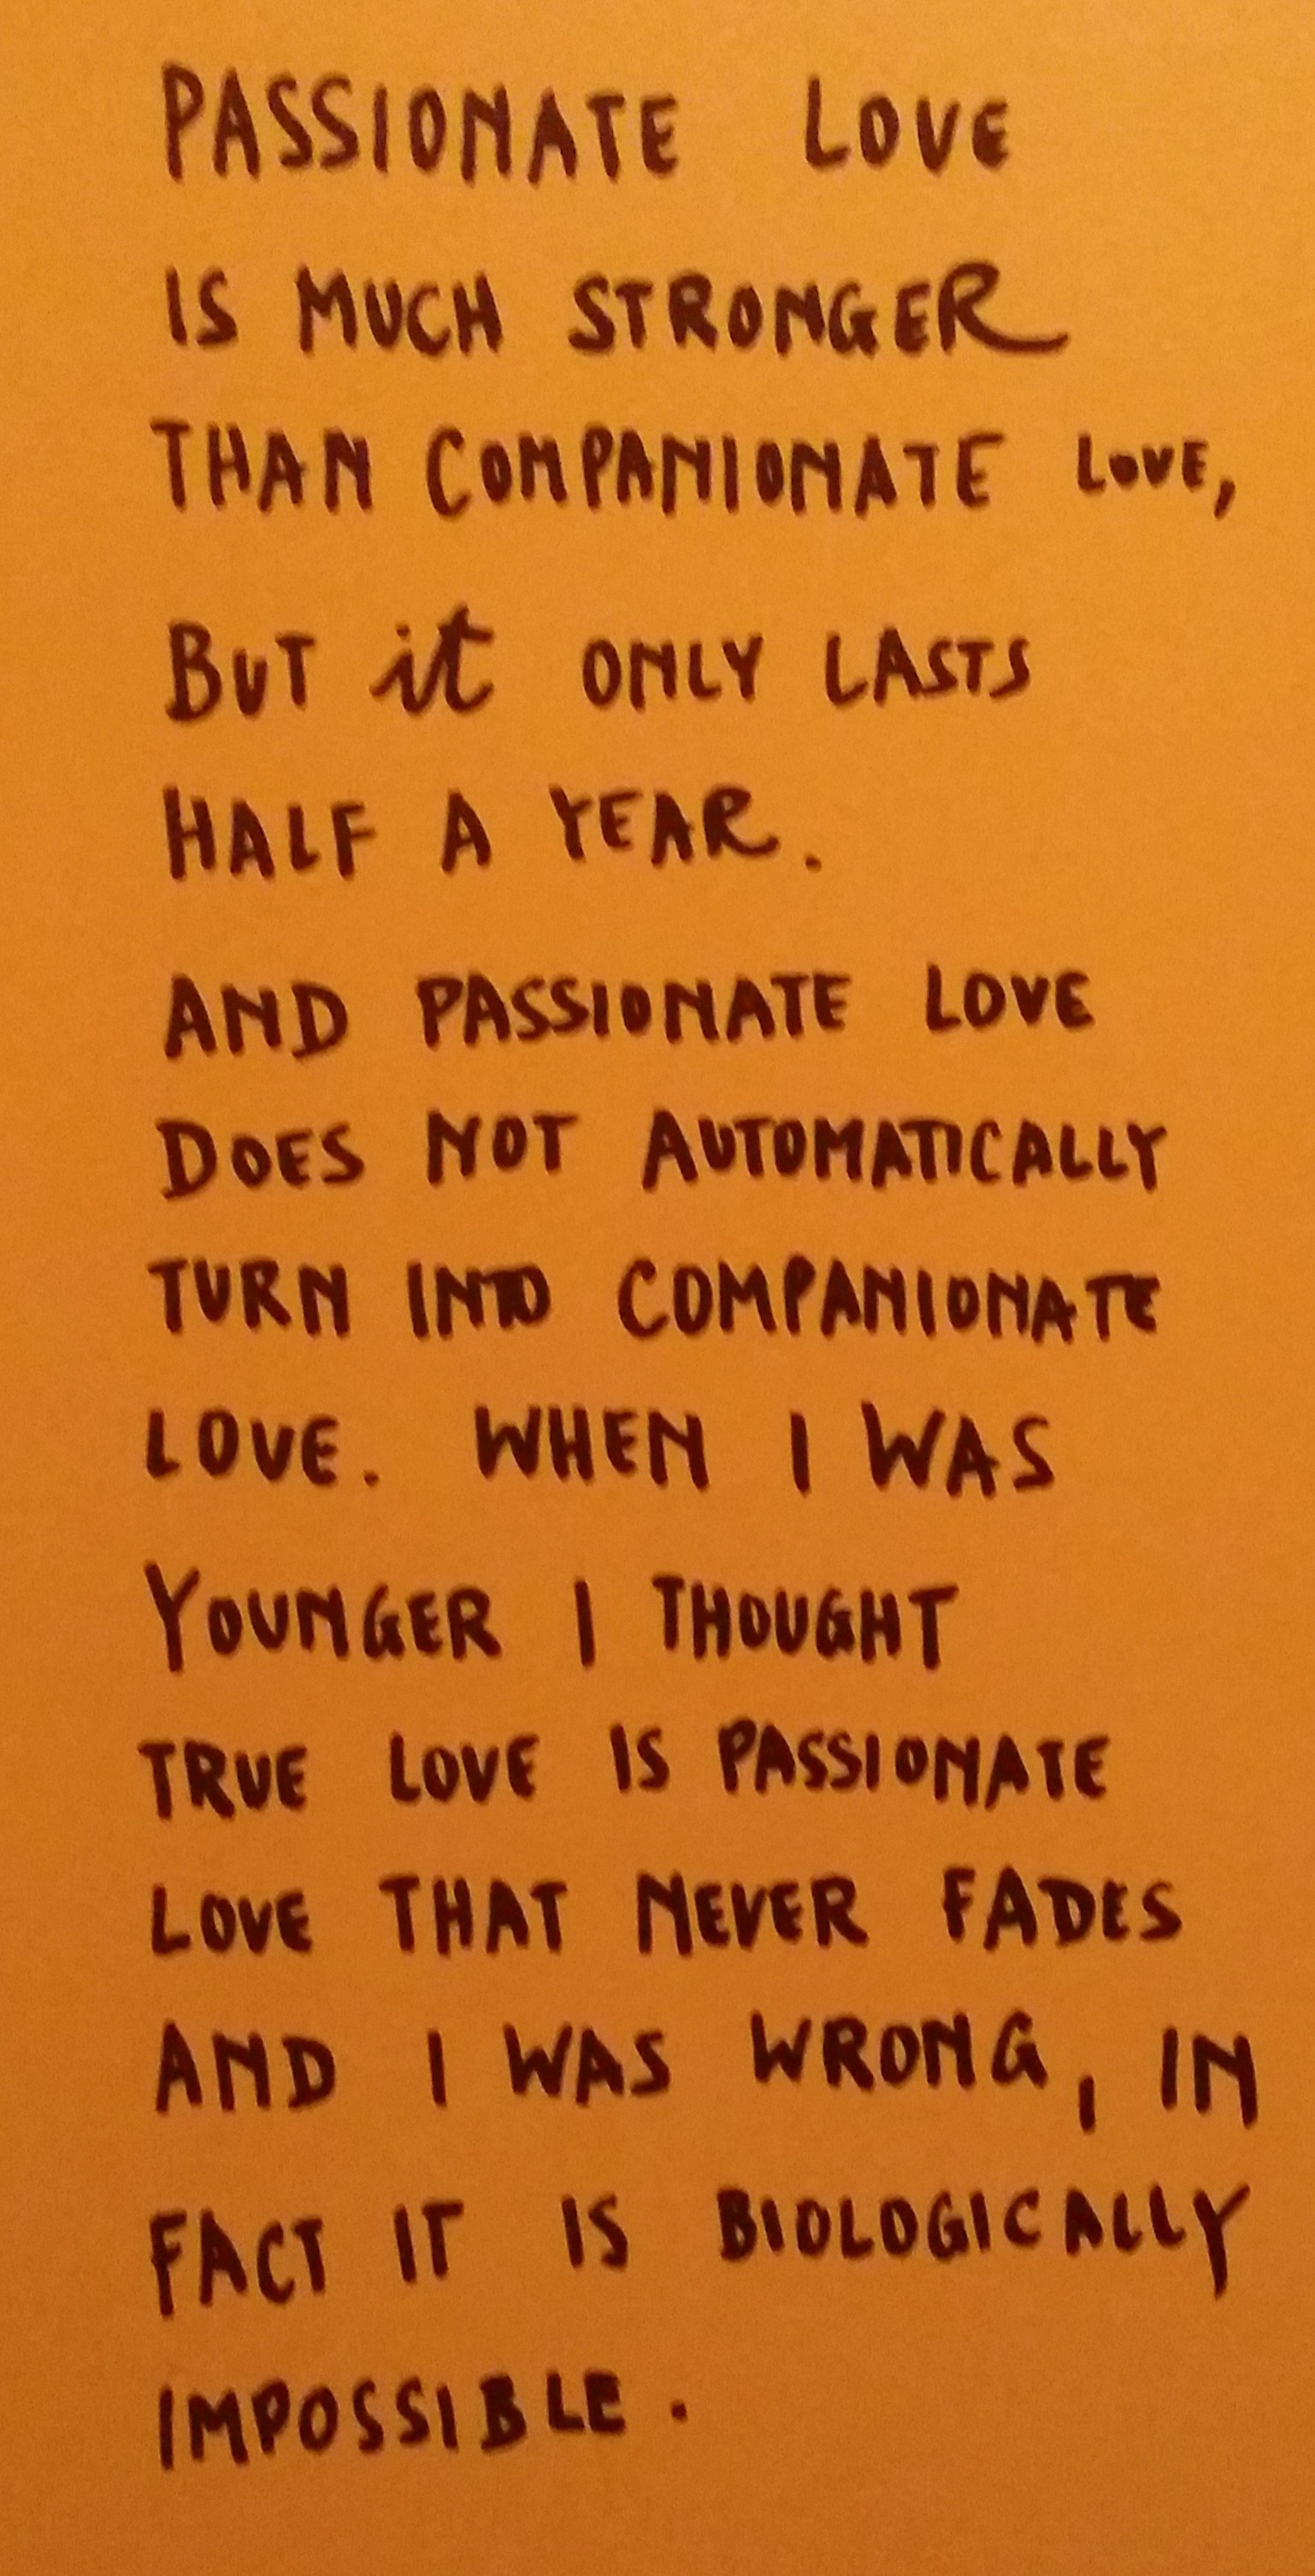 PASSIONATE LOVE
IS MUCH STRONGER
THAN COMPANIONATE LOVE,
BUT it ONLY LASTS
HALF A YEAR.
AND PASSIONATE LOVE
DOES NOT AUTOMATICALLY
TURN INTO COMPANIONATE
LOVE. WHEN I WAS
YOUNGER I THOUGHT
TRUE LOVE IS PASSIONATE
LOVE THAT NEVER FADES
AND I WAS WRONG, IN
FACT IT IS BIOLOGICALLY
IMPOSSIBLE.